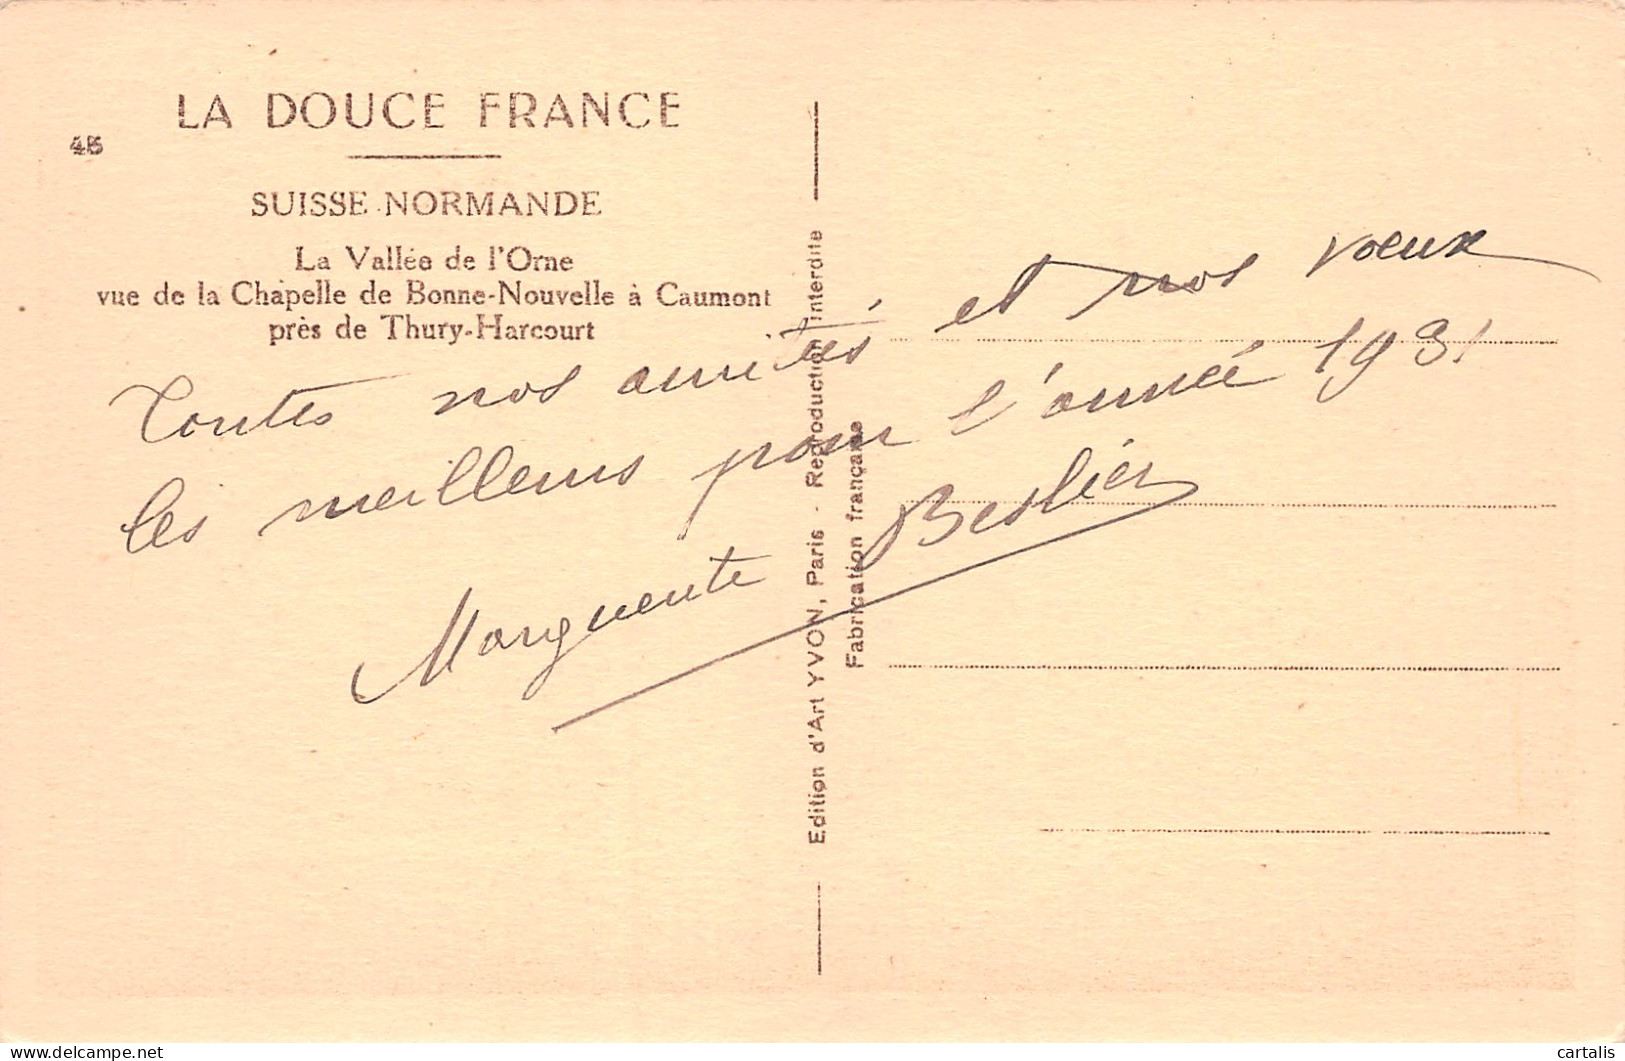 LA DOUCE FRANCE
45
SUISSE NORMANDE
La Vallée de l'Orne
vue de la Chapelle de Bonne-Nouvelle à Caumont
près de Thury-Harcourt
Toutes nos amitiés et nos vœux
les meilleurs pour l'année 1931
Marguerite
Edition d'Art YVON, Paris - Reproduction interdite
Fabrication française
delcampe.net
cartalis